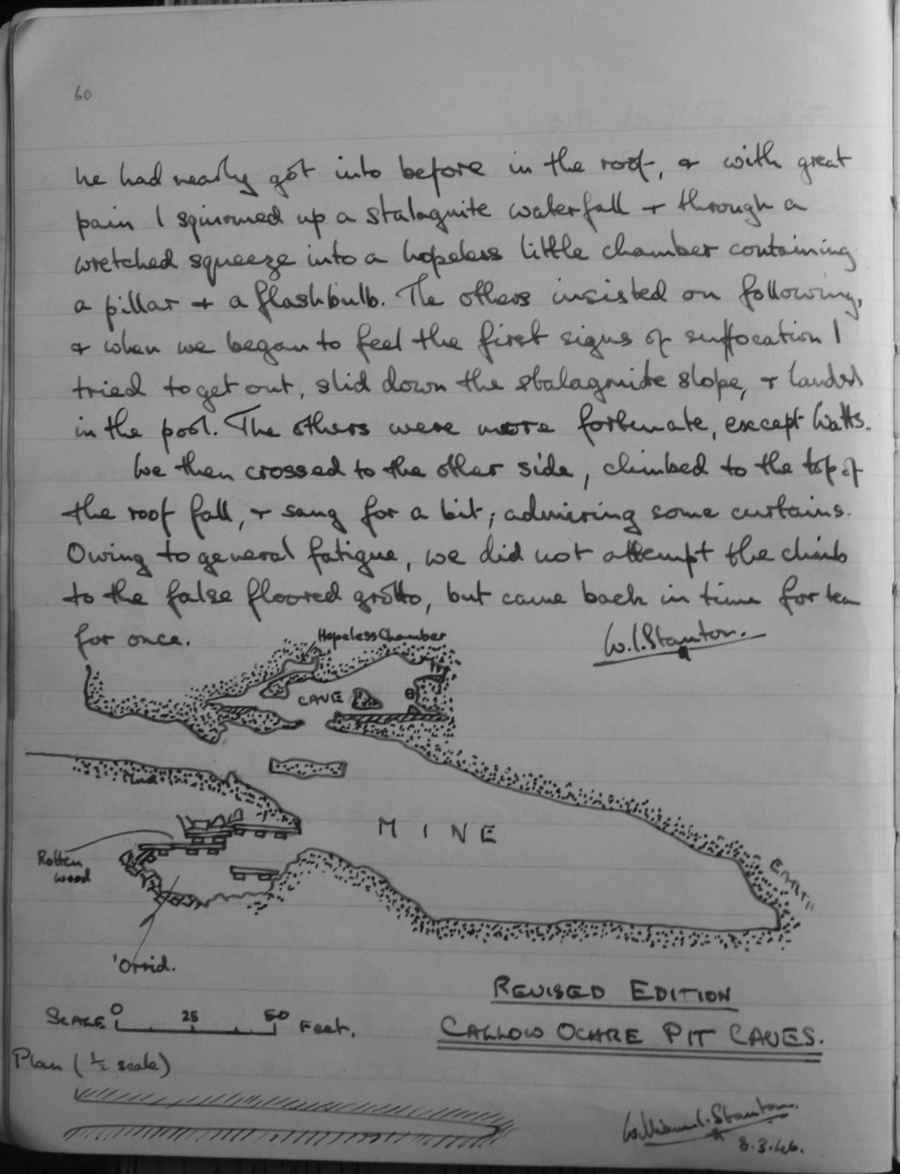 60
he had nearly got into before in the roof, & with great
pain I squirmed up a stalagmite waterfall & through a
wretched squeeze into a hopeless little chamber containing
a pillar & a flashbulb. The others insisted on following,
& when we began to feel the first signs of suffocation I
tried to get out, slid down the stalagmite slope, & landed
in the pool. The others were more fortunate, except Watts.
We then crossed to the other side, climbed to the top of
the roof fall, & sang for a bit; admiring some curtains.
Owing to general fatigue, we did not attempt the climb
to the false floored grotto, but came back in time for tea
for once.
W.I. Stanton.
Hopeless Chamber
CAVE
Mud
MINE
Rotten
wood
EARTH
'Orrid.
REVISED EDITION
SCALE 0 25 50 Feet.
CALLOW OCHRE PIT CAVES.
Plan (½ scale)
William I. Stanton.
8.3.46.